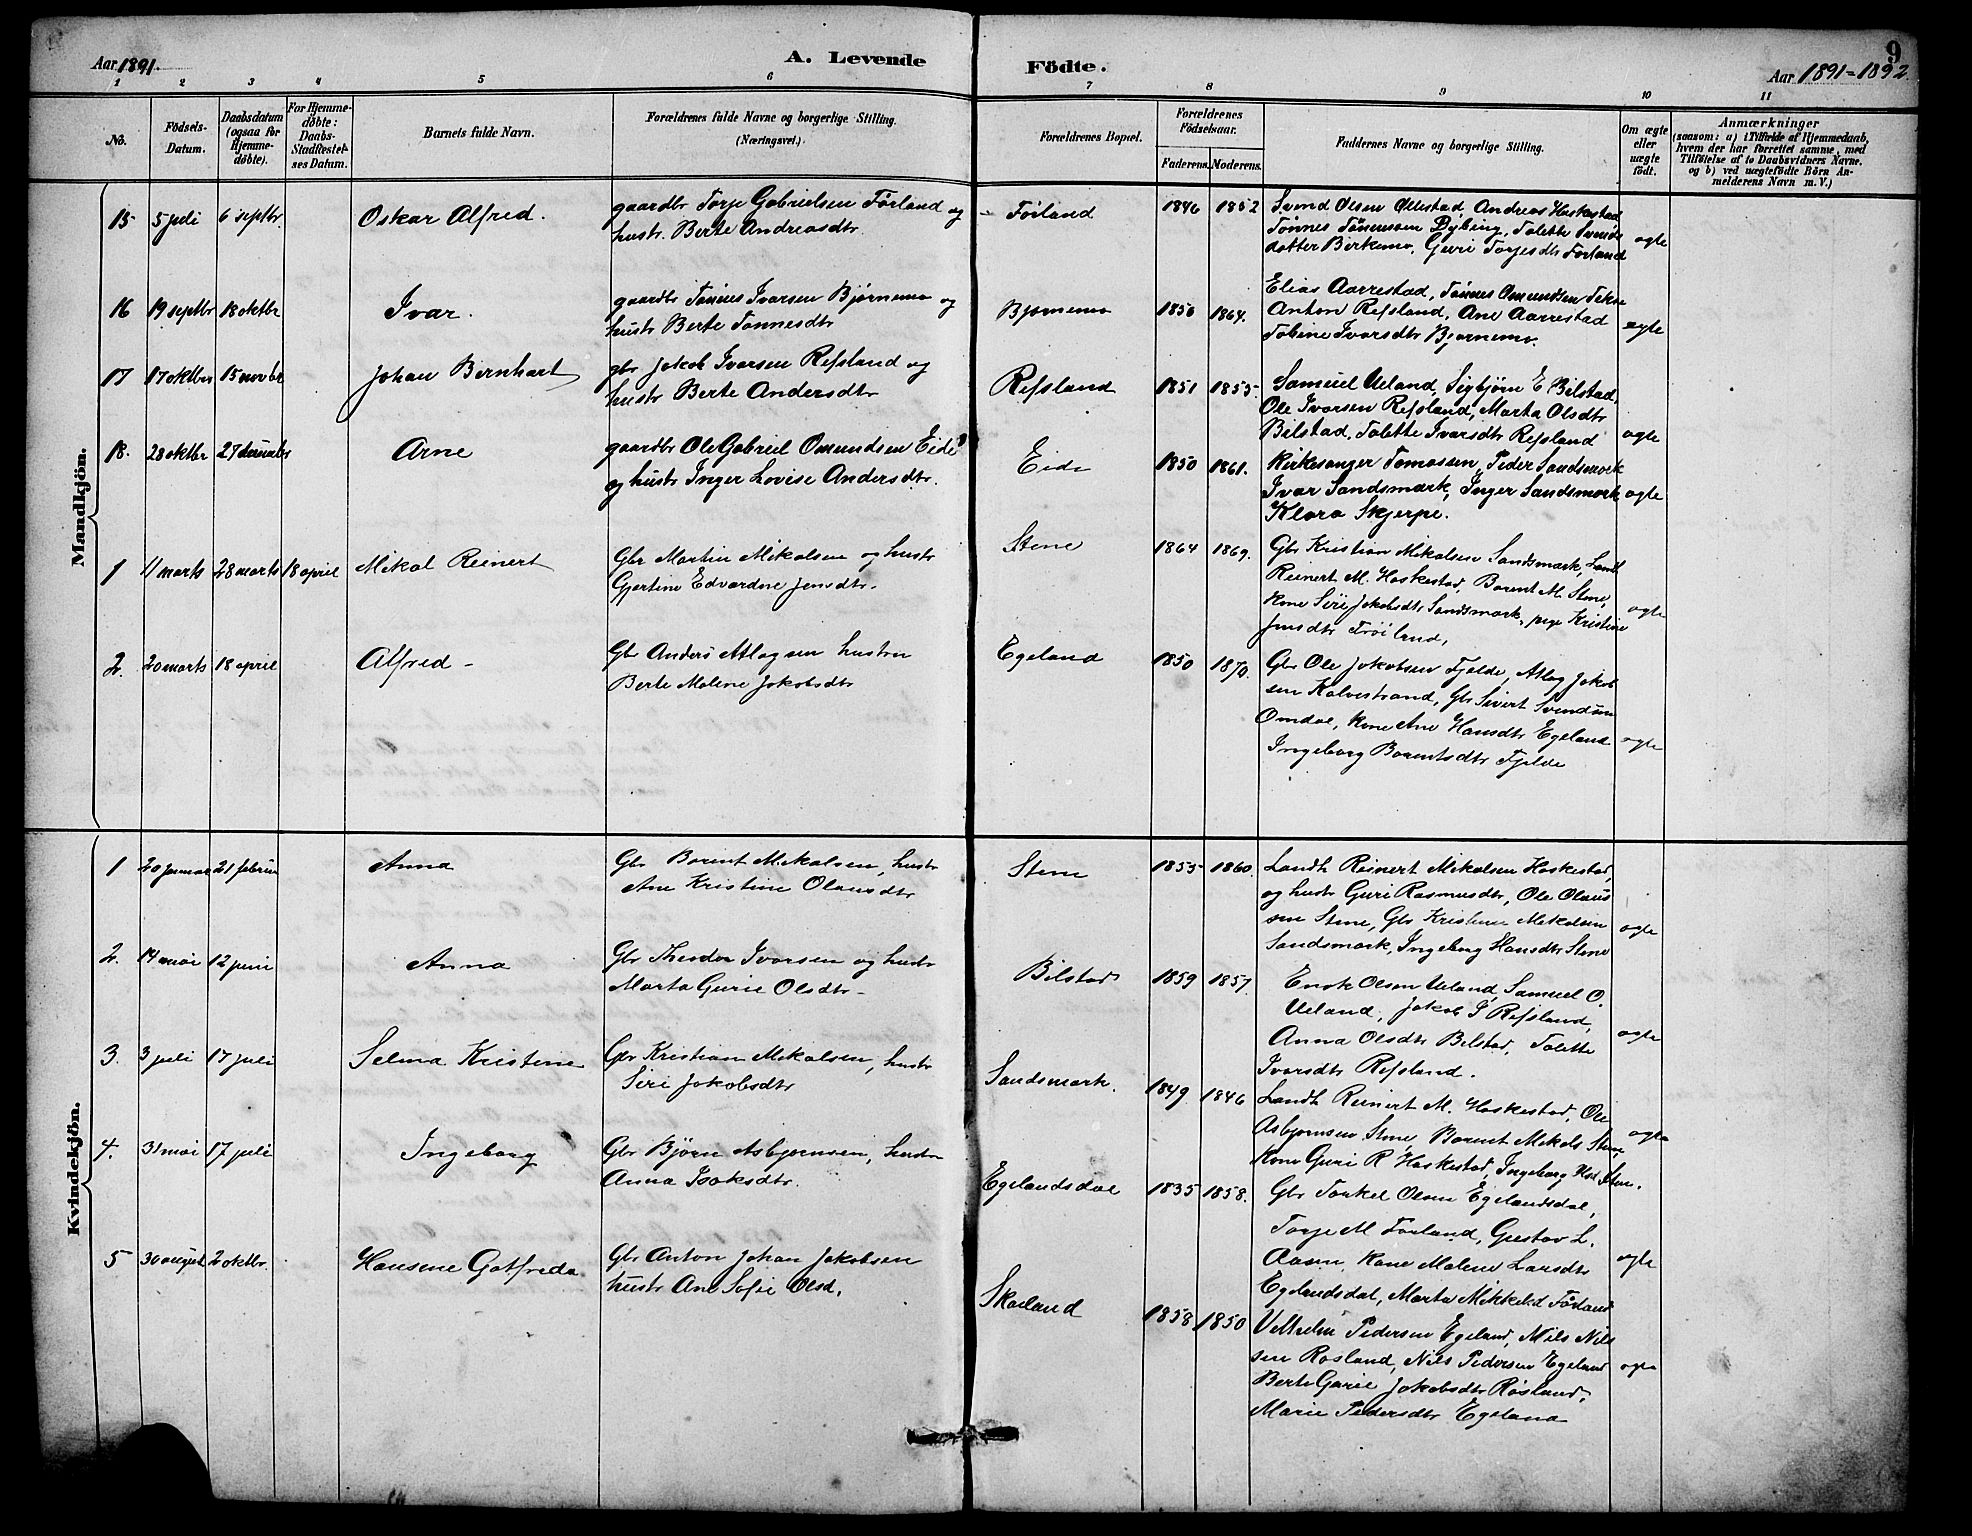 Aar 1891.
A. Levende
Fødte.
9
Aar 1891-1892.
1 2 3 4 5 6 7 8 9 10 11
No.
Fødsels-Datum.
Daabsdatum (ogsaa for Hjemmedøbte).
For Hjemmedøbte: Daabs-Stadfæstelses Datum.
Barnets fulde Navn.
Forældrenes fulde Navne og borgerlige Stilling. (Næringsvei.)
Forældrenes Bopæl.
Forældrenes Fødselsaar.
Faderens. Moderens.
Faddernes Navne og borgerlige Stilling.
Om ægte eller uægte født.
Anmærkninger
(saasom: a) i Tilfælde af Hjemmedaab,
hvem der har forrettet samme, med
Tilføielse af to Daabsvidners Navne.
og b) ved uægtefødte Børn Anmelderens Navn m. V.)
Mandkjön.
15 5 juli 6 septbr. Oskar Alfred.
gaardbr Torje Gabrielsen Førland og
hustr. Berte Andreasdtr.
Førland 1846 1852
Svend Olsen Ollestad, Andreas Haskestad
Tønnes Tønnessen Dybing, Tolette Svends
datter Birkemo, Guri Torjesdtr Førland
ægte
16 19 septbr 18 oktbr Ivar.
gaardbr Tønnes Ivarsen Bjørnemo og
hustr Berte Tønnesdtr
Bjørnemo 1850 1864.
Elias Aarrestad, Tønnes Omundsen
Anton Refsland, Ane Aarrestad
Tobine Ivarsdtr Bjørnemo.
ægte
17 17 oktbr 15 novbr Johan Bernhart
gbr Jakob Ivarsen Refsland og
hustr Berte Andersdtr
Refsland 1851 1855.
Samuel Ueland, Sigbjørn E Bilstad,
Ole Ivarsen Refsland, Marta Olsdtr
Bilstad, Tolette Ivarsdtr Refsland
ægte
18. 28 oktbr 27 Arne
gaardbr Ole Gabriel Omundsen Eide
og hustr Inger Lovise Andersdtr.
Eide 1850 1861.
Kirkesanger Tomassen, Peder Sandsmark
Ivar Sandsmark, Inger Sandsmark
Klara Skjerpe.
ægte
1 11 marts 28 marts 18 april Mikal Reinert
Gbr Martin Mikalsen og hustr
Gjertine Edvardine Jensdtr.
Stene 1864 1869.
Gbr Kristian Mikalsen Sandsmark, Landh
Reinert M. Haskestad, Borent M. Stene,
Kone Siri Jakobsdtr Sandsmark, pige Kristine
Jensdtr Frøiland,
ægte
2. 20 marts 18 april Alfred -
Gbr Anders Atlagsen hustru
Berte Malene Jakobsdtr
Egeland 1850 1870.
Gbr Ole Jakobsen Fjelde, Atlag Jakob
sen Kalvestrand, Gbr Sivert Svendsen
Omdal, Kone Ane Hansdtr Egeland
Ingeborg Borentsdtr Fjelde
ægte
Kvindekjön.
1 20 januar 21 februar Anna
Gbr Borent Mikalsen, hustr
Ane Kristine Olausdtr
Stene 1855 1860.
Landh Reinert Mikalsen Haskestad,
og hustr Guri Rasmusdtr, Ole Olaus
sen Stene, Gbr Kristian Mikalsen
Sandsmark, Ingeborg Hansdtr Stene
ægte
2. 14 mai 12 juni Anna
Gbr Theodor Ivarsen og hustr
Marta Gurie Olsdtr -
Bilstad 1859 1857.
Enok Olsen Ueland, Samuel O.
Ueland, Jakob I Refsland,
Anna Olsdtr Bilstad, Tolette
Ivarsdtr Refsland.
ægte
3. 3 juli 17 juli Selma Kristine
Gbr Kristian Mikalsen, hustr
Siri Jakobsdtr
Sandsmark. 1849 1846
Landh Reinert M. Haskestad, Ole
Asbjørnsen Stene, Borent Mikals. Stene,
Kone Guri R Haskestad, Ingeborg Hsd. Stene.
ægte
4. 31 mai 17 juli Ingeborg
Gbr Bjørn Asbjørnsen, hustr
Anna Isaksdtr.
Egelandsdal 1835 1858.
Gbr Torkel Olsen Egelandsdal,
Torje M Førland, Gustav L.
Aasen, Kone Malene Larsdtr
Egelandsdal, Marta Mikkelsd Førland
ægte
5 30 august 2 oktbr. Hansine Gotfreda
Gbr Anton Johan Jakobsen
hustr Ane Sofie Olsd,
Skailand 1858 1850
Vilhelm Pedersen Egeland, Nils Nils
sen Rosland, Nils Pedersen Egeland
Berte Gurie Jakobsdtr Røsland,
Marie Pedersdtr Egeland
ægte